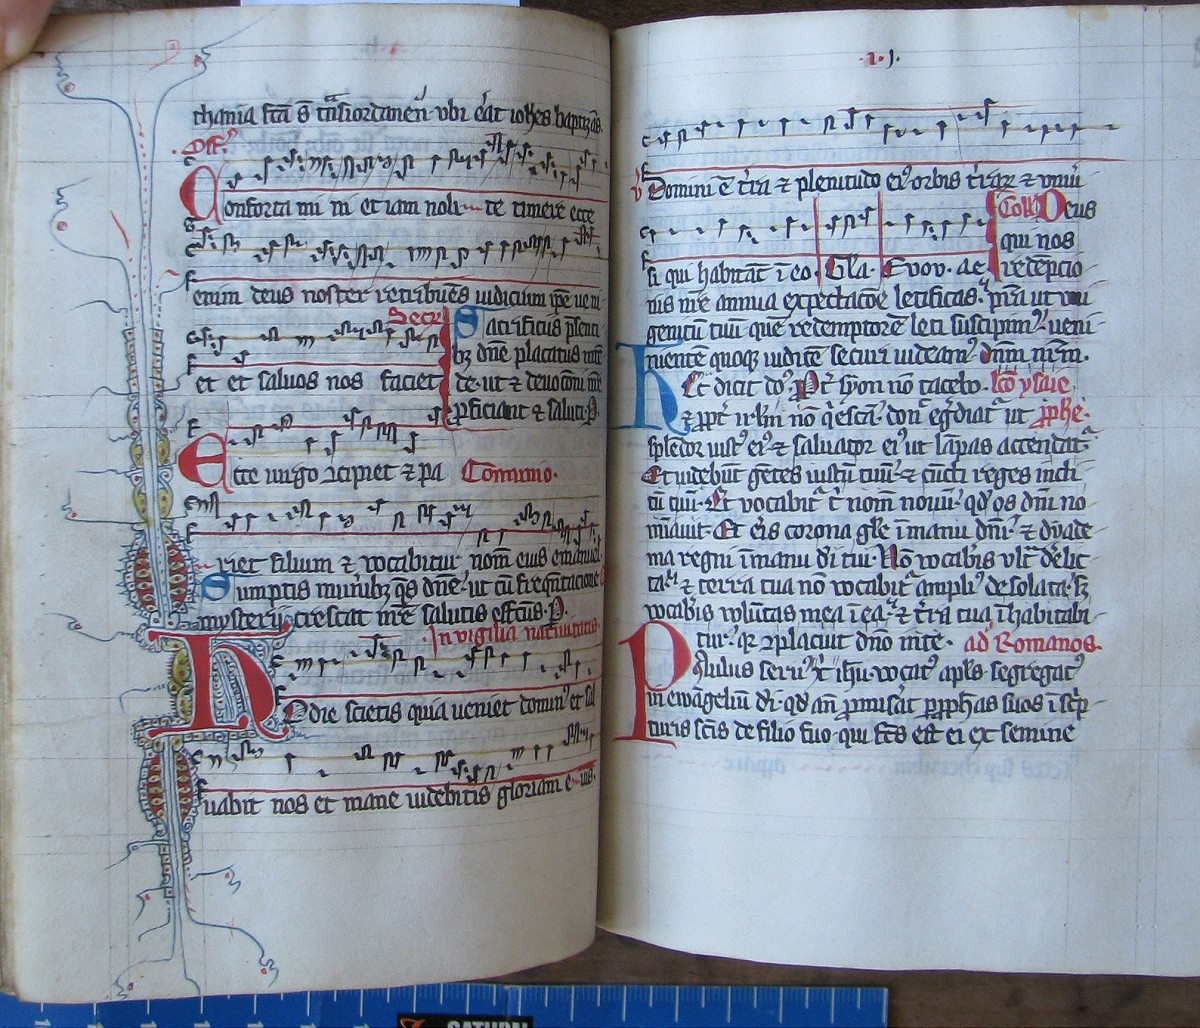 thania sca s̄ tn̄siordanen̄ vbi ēat iohes baptizās.
Off.
Conforta mi ni et iam noli te timere ecce
enim deus noster retribuēs iudicium ipe ueni
Secr̄
et et saluos nos faciet
Sacrificiis p̄senti
bz dn̄e placatus inte
de. ut ⁊ deuocōni nr̄e
proficiant ⁊ saluti. P.
Ecce uirgo ↄcipiet ⁊ pa Comunio.
riet filium ⁊ vocabitur nom̄ eius emanuel.
Sumptis munībz q̄s dn̄e ut cū freq̄ntacione
mysterij crescat nr̄e salutis effcūs. P.
In vigilia natiuitatis
Hodie scietis quia ueniet domin' et sal
uabit nos et mane uidebitis gloriam e ius.
.x.j.
v̄ Domini ē t̄ra ⁊ plenitudo ei' orbis t̄rar̄ ⁊ vniū
si qui habitāt ī eo. Gla. Evov. ae
Coll' Deus
qui nos
redēpcio
nis nr̄e annua expectacōe letificas. p̄sta ut vni
genitū tuū quē redemptorē leti suscipim' ueni
niente quoqz iudicē securi uideam' dn̄m nr̄m.
Hec dicit do' Pt̄ syon nō tacebo. lcō ysaie
⁊ ppt̄ irlm nō q̄escā. don̄ eḡdiat̄ ut pphē.
splēdor iust' ei' ⁊ saluator ei' ut lāpas accendat̄
Et uidebūt gētes iustū tuū ⁊ cūcti reges incli
tū tuū. Et vocabit̄ t̄ nom̄ nouū qd' os dn̄i no
mīauit. Et ēis corona gl̄e ī manu dn̄i ⁊ dyade
ma regni ī manu di tui. Nō vocab̄is vlt̄ d̄elic
ta. ⁊ terra tua nō vocabit̄ ampli' desolata. sz
vocab̄is volūtas mea ī ea. ⁊ t̄ra tua īhabitabi
tur. qz ↄplacuit dn̄o in te. ad Romanos.
Paulus seru' xp̄i ihu. vocat' apls. segregat'
in ewāgeliū di. qd' an̄ promisāt p pphas suos ī scp
turis scīs de filio suo. qui fcs est ei ex semine
SATURN